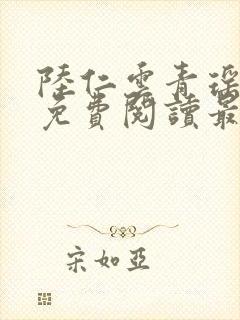 陸仁雲青瑤
免費閱讀最
宋如亞